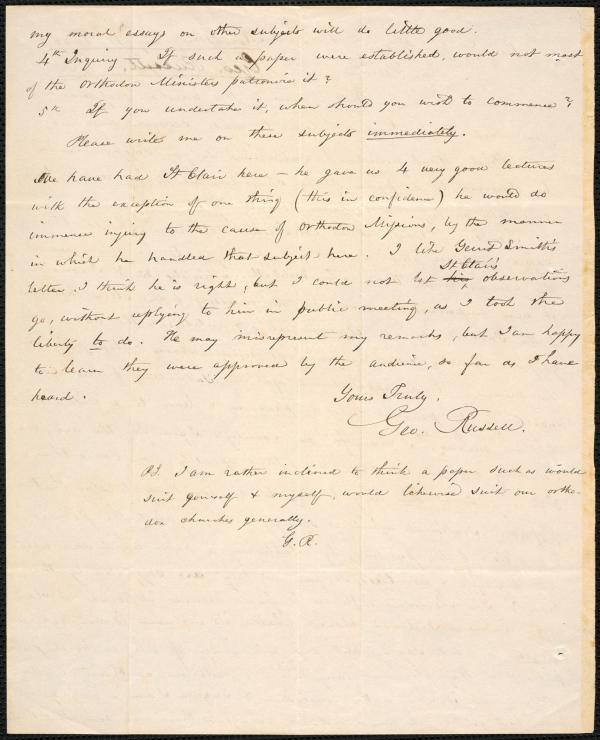 my moral essays on other subjects will do little good.
4th Inquiry If such a paper were established, would not most
of the Orthodox Ministers patronize it?
5th If you undertake it, when should you wish to commence?
Please write me on these subjects immediately.
We have had St Clair here – he gave us 4 very good lectures
with the exception of one thing (this in confidence) he would do
immense injury to the cause of Orthodox Missions, by the manner
in which he handled that subject here. I like Gerrit Smith's
letter. I think he is right, but I could not let his St Clair's observations
go, without replying to him in public meeting, as I took the
liberty to do. He may misrepresent my remarks, but I am happy
to learn they were approved by the audience, so far as I have
heard. Yours Truly.
Geo. Russell.
P.S. I am rather inclined to think a paper such as would
suit yourself & myself, would likewise suit our ortho-
dox churches generally.
G. R.